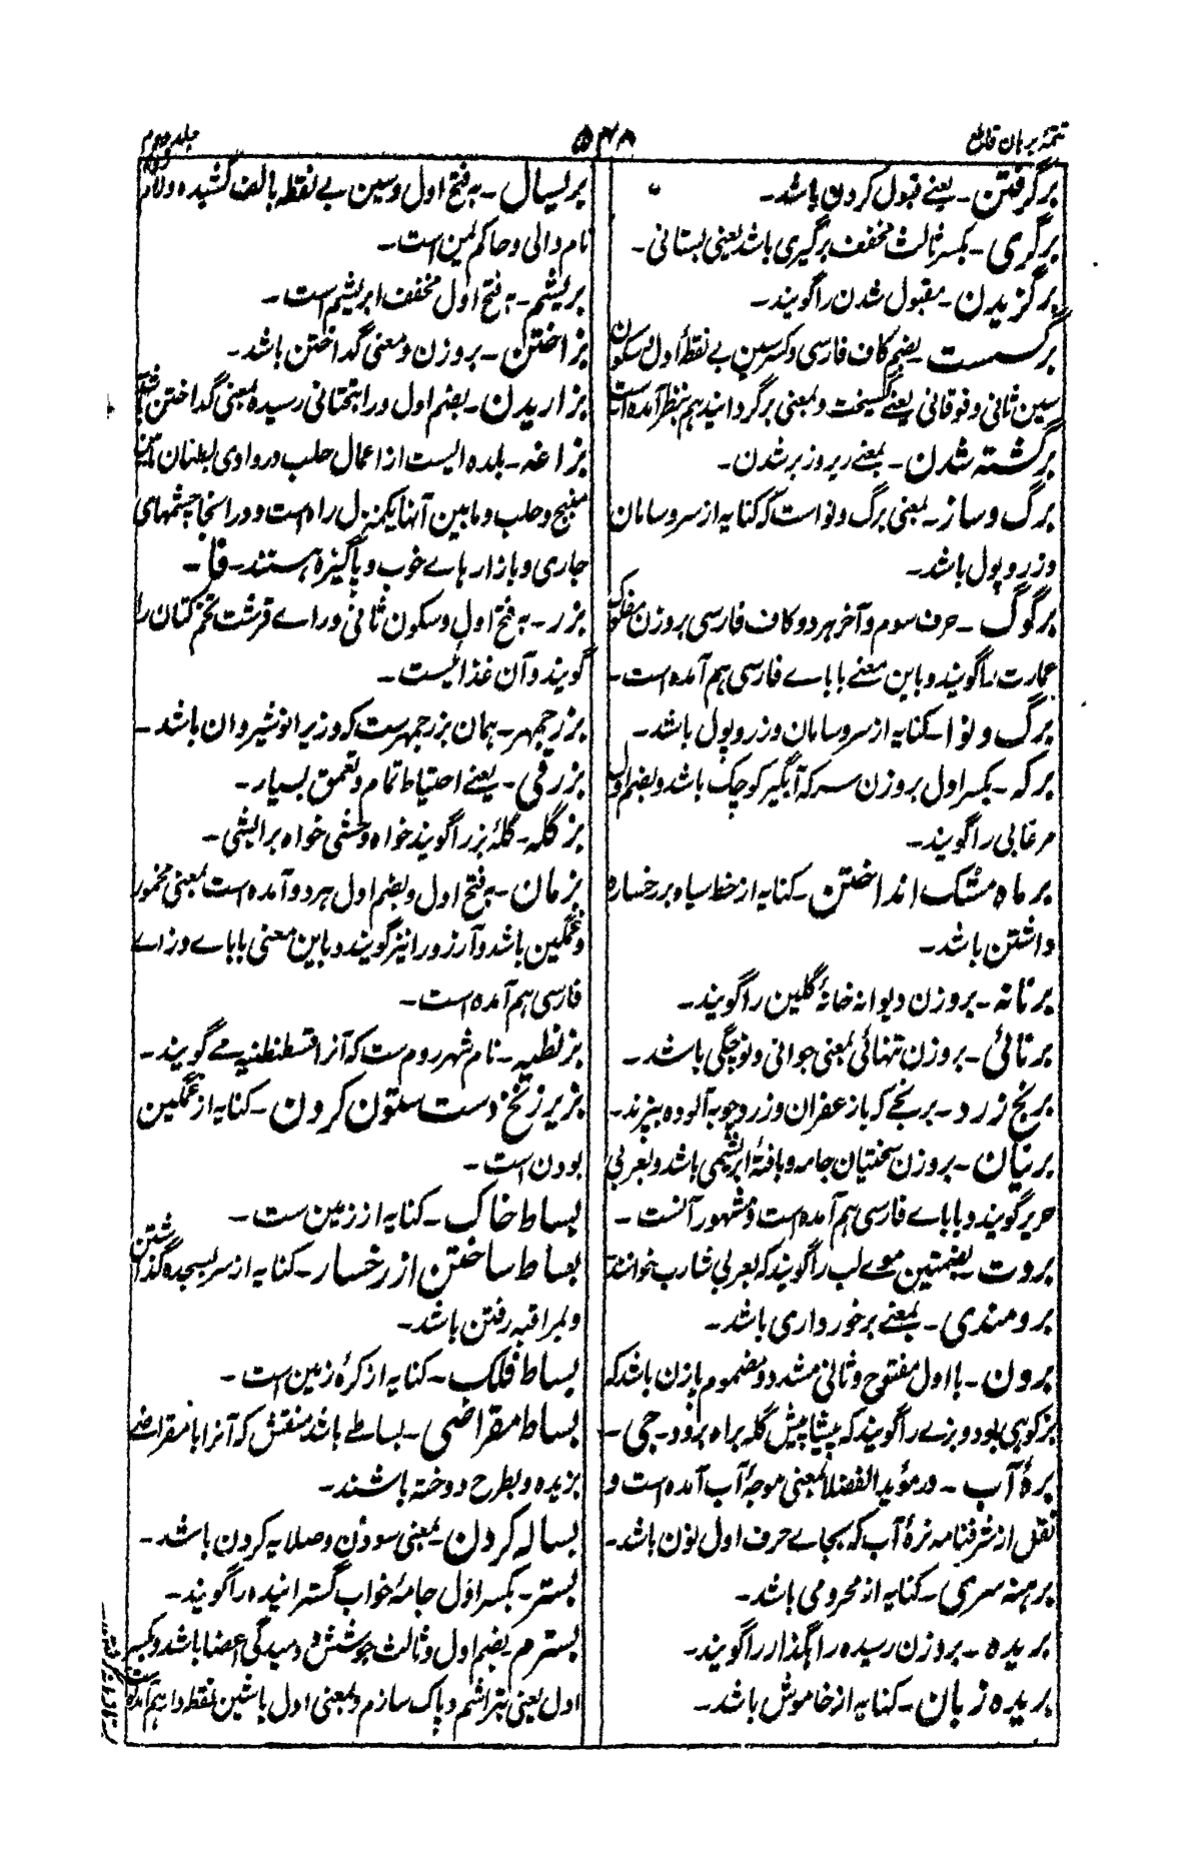 تتمهٔ برهان قاطع
۵۴۸
جلد دوم
برگرفتن ـ یعنے قبول کردن باشد ـ
برگری ـ بکسر ثالث مخفف برگیری باشد یعنی بستانی ـ
برگزیدن ـ مقبول شدن را گویند ـ
برگسست ـ بضم کاف فارسی و کسر سین بے نقطهٔ اول و سکون
سین ثانی و فوقانی یعنے گسیخت و بمعنی برگردانید هم بنظر آمده است
برگشته شدن ـ بمعنے زیر و زبر شدن ـ
برگ و ساز ـ بمعنی برگ و نواست که کنایه از سر و سامان
و زر و پول باشد ـ
برگوک ـ حرف سوم و آخر هر دو کاف فارسی بروزن مفلوک
عمارت را گویند و باین معنے با باے فارسی هم آمده است ـ
برگ و نوا ـ کنایه از سر و سامان و زر و پول باشد ـ
برکه ـ بکسر اول بروزن سرکه آبگیر کوچک باشد و بضم اول
مرغابی را گویند ـ
بر ماه مشک انداختن ـ کنایه از خط سیاه بر رخساره
داشتن باشد ـ
برنانه ـ بروزن دیوانه خانهٔ گلین را گویند ـ
برنائی ـ بروزن تنهائی بمعنی جوانی و نوچگی باشد ـ
برنج زرد ـ برنجے که با زعفران و زردچوبه آلوده بپزند ـ
برنیان ـ بروزن سختیان جامه و بافتهٔ ابریشمی باشد و بعربی
حریر گویند و با باے فارسی هم آمده است و مشهور آنست ـ
بروت ـ بضمتین موے لب را گویند که بعربی شارب خوانند
برومندی ـ بمعنے برخورداری باشد ـ
برون ـ با اول مفتوح و ثانی مشدد و مضموم پازن باشد که
بز کوهی بود و بزے را گویند که پیشاپیش گله براه برود ـ جی ـ
برهٔ آب ـ در مؤید الفضلا بمعنی موجهٔ آب آمده است و
نقل از شرفنامه نرهٔ آب که بجاے حرف اول نون باشد ـ
برهنه سری ـ کنایه از محرومی باشد ـ
بریده ـ بروزن رسیده راهگذار را گویند ـ
بریده زبان ـ کنایه از خاموش باشد ـ
بریسال ـ به فتح اول و سین بے نقطه بالف کشیده و لام
نام والی و حاکم یمن است ـ
بریشم ـ به فتح اول مخفف ابریشم است ـ
بزاختن ـ بروزن و معنی گداختن باشد ـ
بزاریدن ـ بضم اول و را بتحتانی رسیده بمعنی گداختن باشد
بزاعه ـ بلده ایست از اعمال حلب در وادی لبطنان مابین
منبج و حلب و مابین آنها یکمنزل راه است و در انجا چشمهای
جاری و بازارهاے خوب و پاکیزه هستند ـ قا ـ
بزر ـ به فتح اول و سکون ثانی و راے قرشت تخم کتان را
گویند و آن غذائیست ـ
بزرجمهر ـ همان بزرجمهرست که وزیر انوشیروان باشد ـ
بزرفی ـ یعنے احتیاط تمام و تعمق بسیار ـ
بزگله ـ گلهٔ بز را گویند خواه وحشی خواه برالیشی ـ
بزمان ـ به فتح اول و بضم اول هر دو آمده است بمعنی مخمور
و غمگین باشد و آرزو را نیز گویند و باین معنی با باے و زاے
فارسی هم آمده است ـ
بزنطیه ـ نام شهر روم ست که آنرا قسطنطنیه مے گویند ـ
بزیر زنخ دست ستون کردن ـ کنایه از غمگین
بودن است ـ
بساط خاک ـ کنایه از زمین ست ـ
بساط ساختن از رخسار ـ کنایه از سر بسجده گذاشتن
و بمراقبه رفتن باشد ـ
بساط فلک ـ کنایه از کرهٔ زمین است ـ
بساط مقراضی ـ بساطے باشد منقش که آنرا با مقراض
بریده و بطرح دوخته باشند ـ
بساله کردن ـ بمعنی سودن و صلایه کردن باشد ـ
بستر ـ بکسر اول جامهٔ خواب گسترانیده را گویند ـ
بسترم ـ بضم اول و ثالث جوشش و دمیدگی اعضا باشد و بکسر
اول یعنی بتراشم و پاک سازم و بمعنی اول با شین نقطه دار هم آمده است